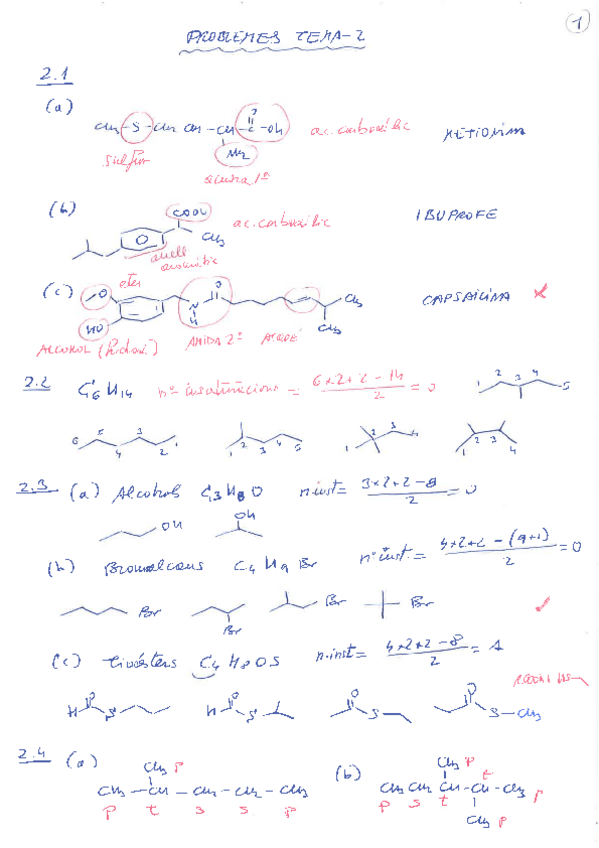 1
PROBLEMES TEMA-2
2.1
(a) CH3-S-CH2 CH2-CH-C-OH ac. carboxílic METIONINA
O
NH2
sulfur
amina 1ª
(b) COOH ac. carboxílic IBUPROFE
CH3
anell aromàtic
(c) eter O O CH3 CAPSAICINA
HO N H CH3
ALCOHOL AMIDA 2ª ALQUÈ
2.2 C6H14 nº insaturacions = 6x2+2-14 / 2 = 0
1 2 3 4 5
6 5 4 3 2 1
1 2 3 4 5
1 2 3 4
1 2 3 4
2.3 (a) Alcohols C3H8O n.inst = 3x2+2-8 / 2 = 0
OH
OH
(b) Bromoalcans C4H9Br nº inst. = 4x2+2-(9+1) / 2 = 0
Br Br Br Br
(c) Tioésters C4H8OS n.inst = 4x2+2-8 / 2 = 1
H O S H O S O S O S-CH3
2.4 (a)
CH3 p
CH3-CH-CH2-CH2-CH3
p t s s p
(b)
CH3 p t
CH3 CH2 CH-CH-CH3
p s t p
CH3 p